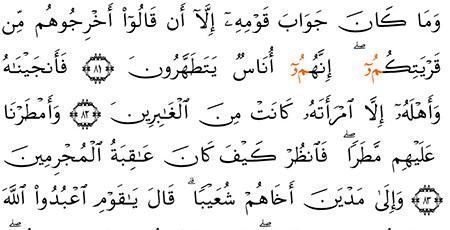 وَمَا كَانَ جَوَابَ قَوْمِهِۦٓ إِلَّآ أَن قَالُوٓاْ أَخْرِجُوهُم مِّن
قَرْيَتِكُمُۥٓۖ إِنَّهُمُۥٓ أُنَاسٞ يَتَطَهَّرُونَ ۝٨١ فَأَنجَيْنَٰهُ
وَأَهْلَهُۥٓ إِلَّا اَ۪مْرَأَتَهُۥ كَانَتْ مِنَ اَ۬لْغَٰبِرِينَ ۝٨٢ وَأَمْطَرْنَا
عَلَيْهِم مَّطَراٗۖ فَانظُرْ كَيْفَ كَانَ عَٰقِبَةُ اُ۬لْمُجْرِمِينَ
۝٨٣ وَإِلَىٰ مَدْيَنَ أَخَاهُمْ شُعَيْباٗۚ قَالَ يَٰقَوْمِ اِ۟عْبُدُواْ اُ۬للَّهَ